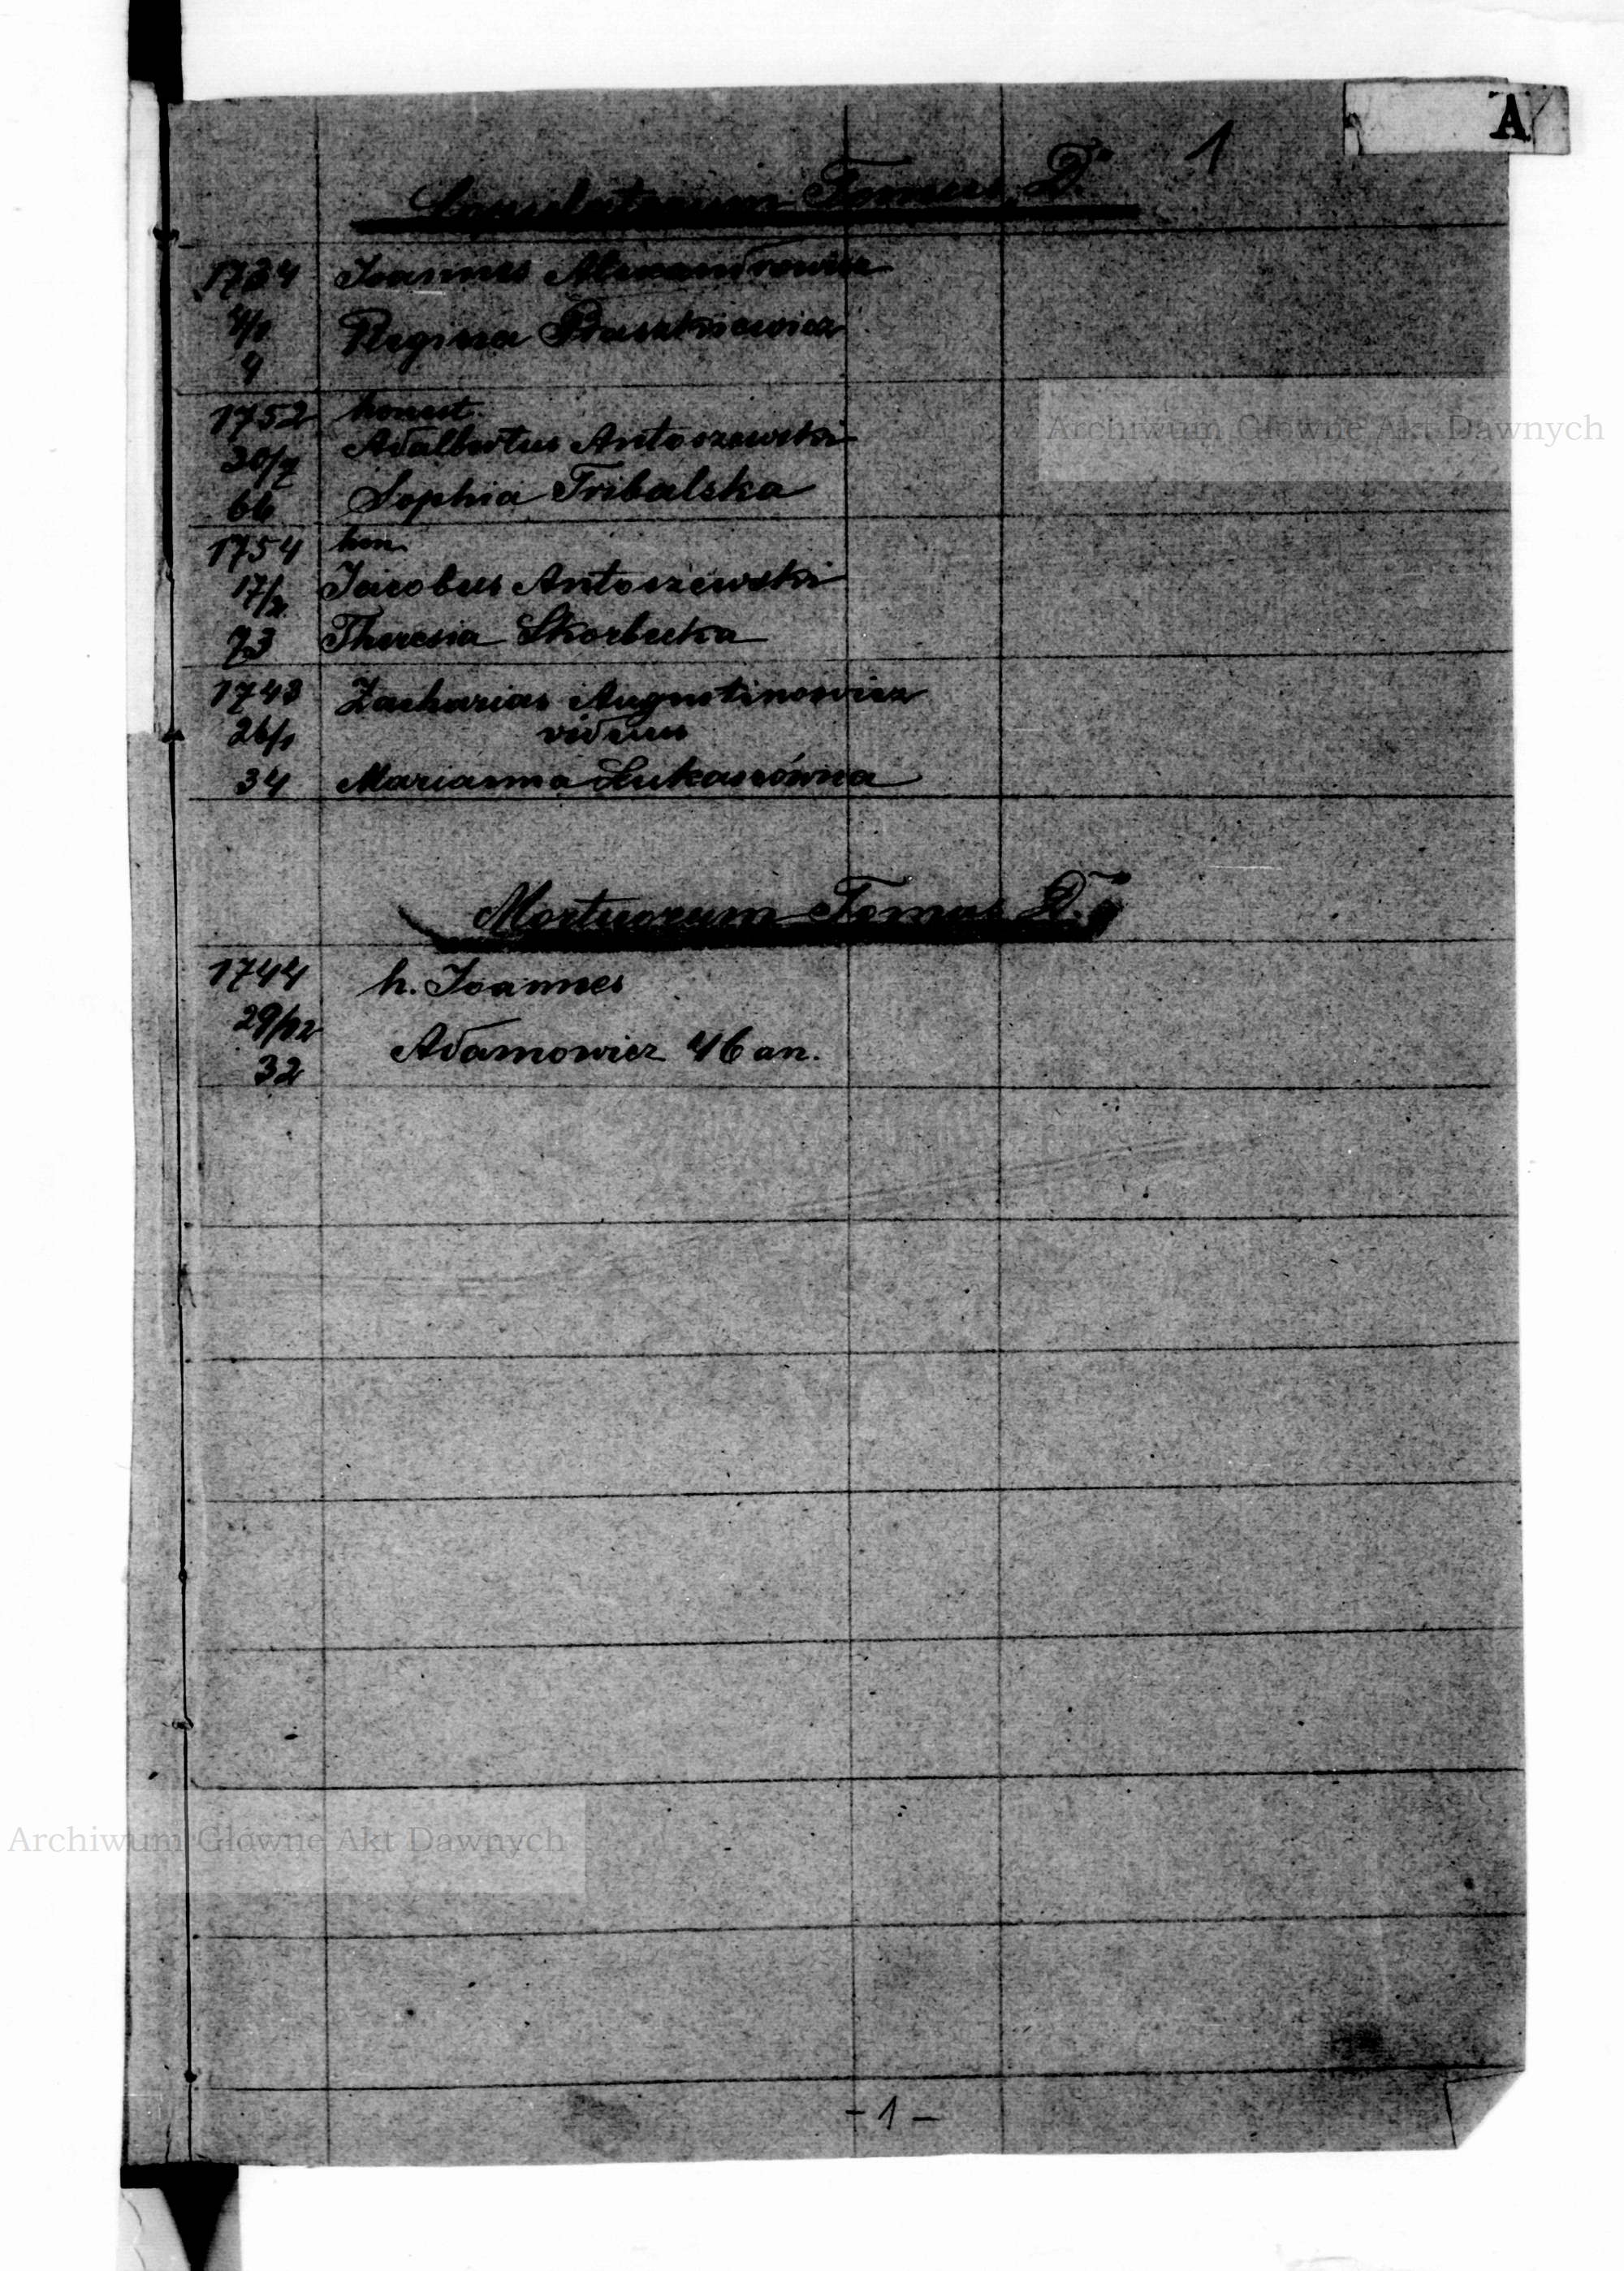 A
1
Copulatorum Tomus D.
1734 Joannes Alexandrowicz
4/2 Regina Ptaszkiewicz
4
1752 honest.
Adalbertus Antoszewski
30/7
66 Sophia Tribalska
1754 hon.
17/2 Jacobus Antoszewski
73 Theresia Skorbutka
1743 Zacharias Augustinowicz
26/1 viduus
34 Marianna Lukaszówna
Mortuorum Tomus D.
1744 h. Joannes
29/12
Adamowicz 46 an.
32
- 1 -
Archiwum Główne Akt Dawnych
Archiwum Główne Akt Dawnych